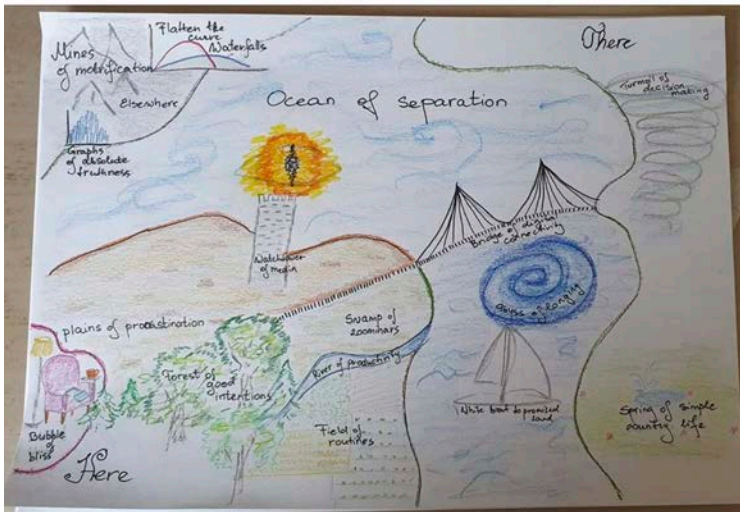 Mines
of motrification
Flatten the
curve
Waterfalls
Elsewhere
Graphs
of absolute
truthness
Ocean of separation
There
Turmoil of
decision
making
Watchtower
of media
Bridge of digital
connectivity
abyss of longing
plains of procrastination
Swamp of
zoominars
River of productivity
Forest of
good
intentions
White boat to promised
land
Spring of simple
country life
Bubble
of
bliss
Field of
routines
Here